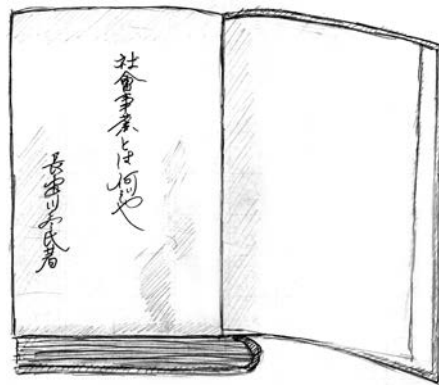 社會事業とは何ぞや
長谷川良信著